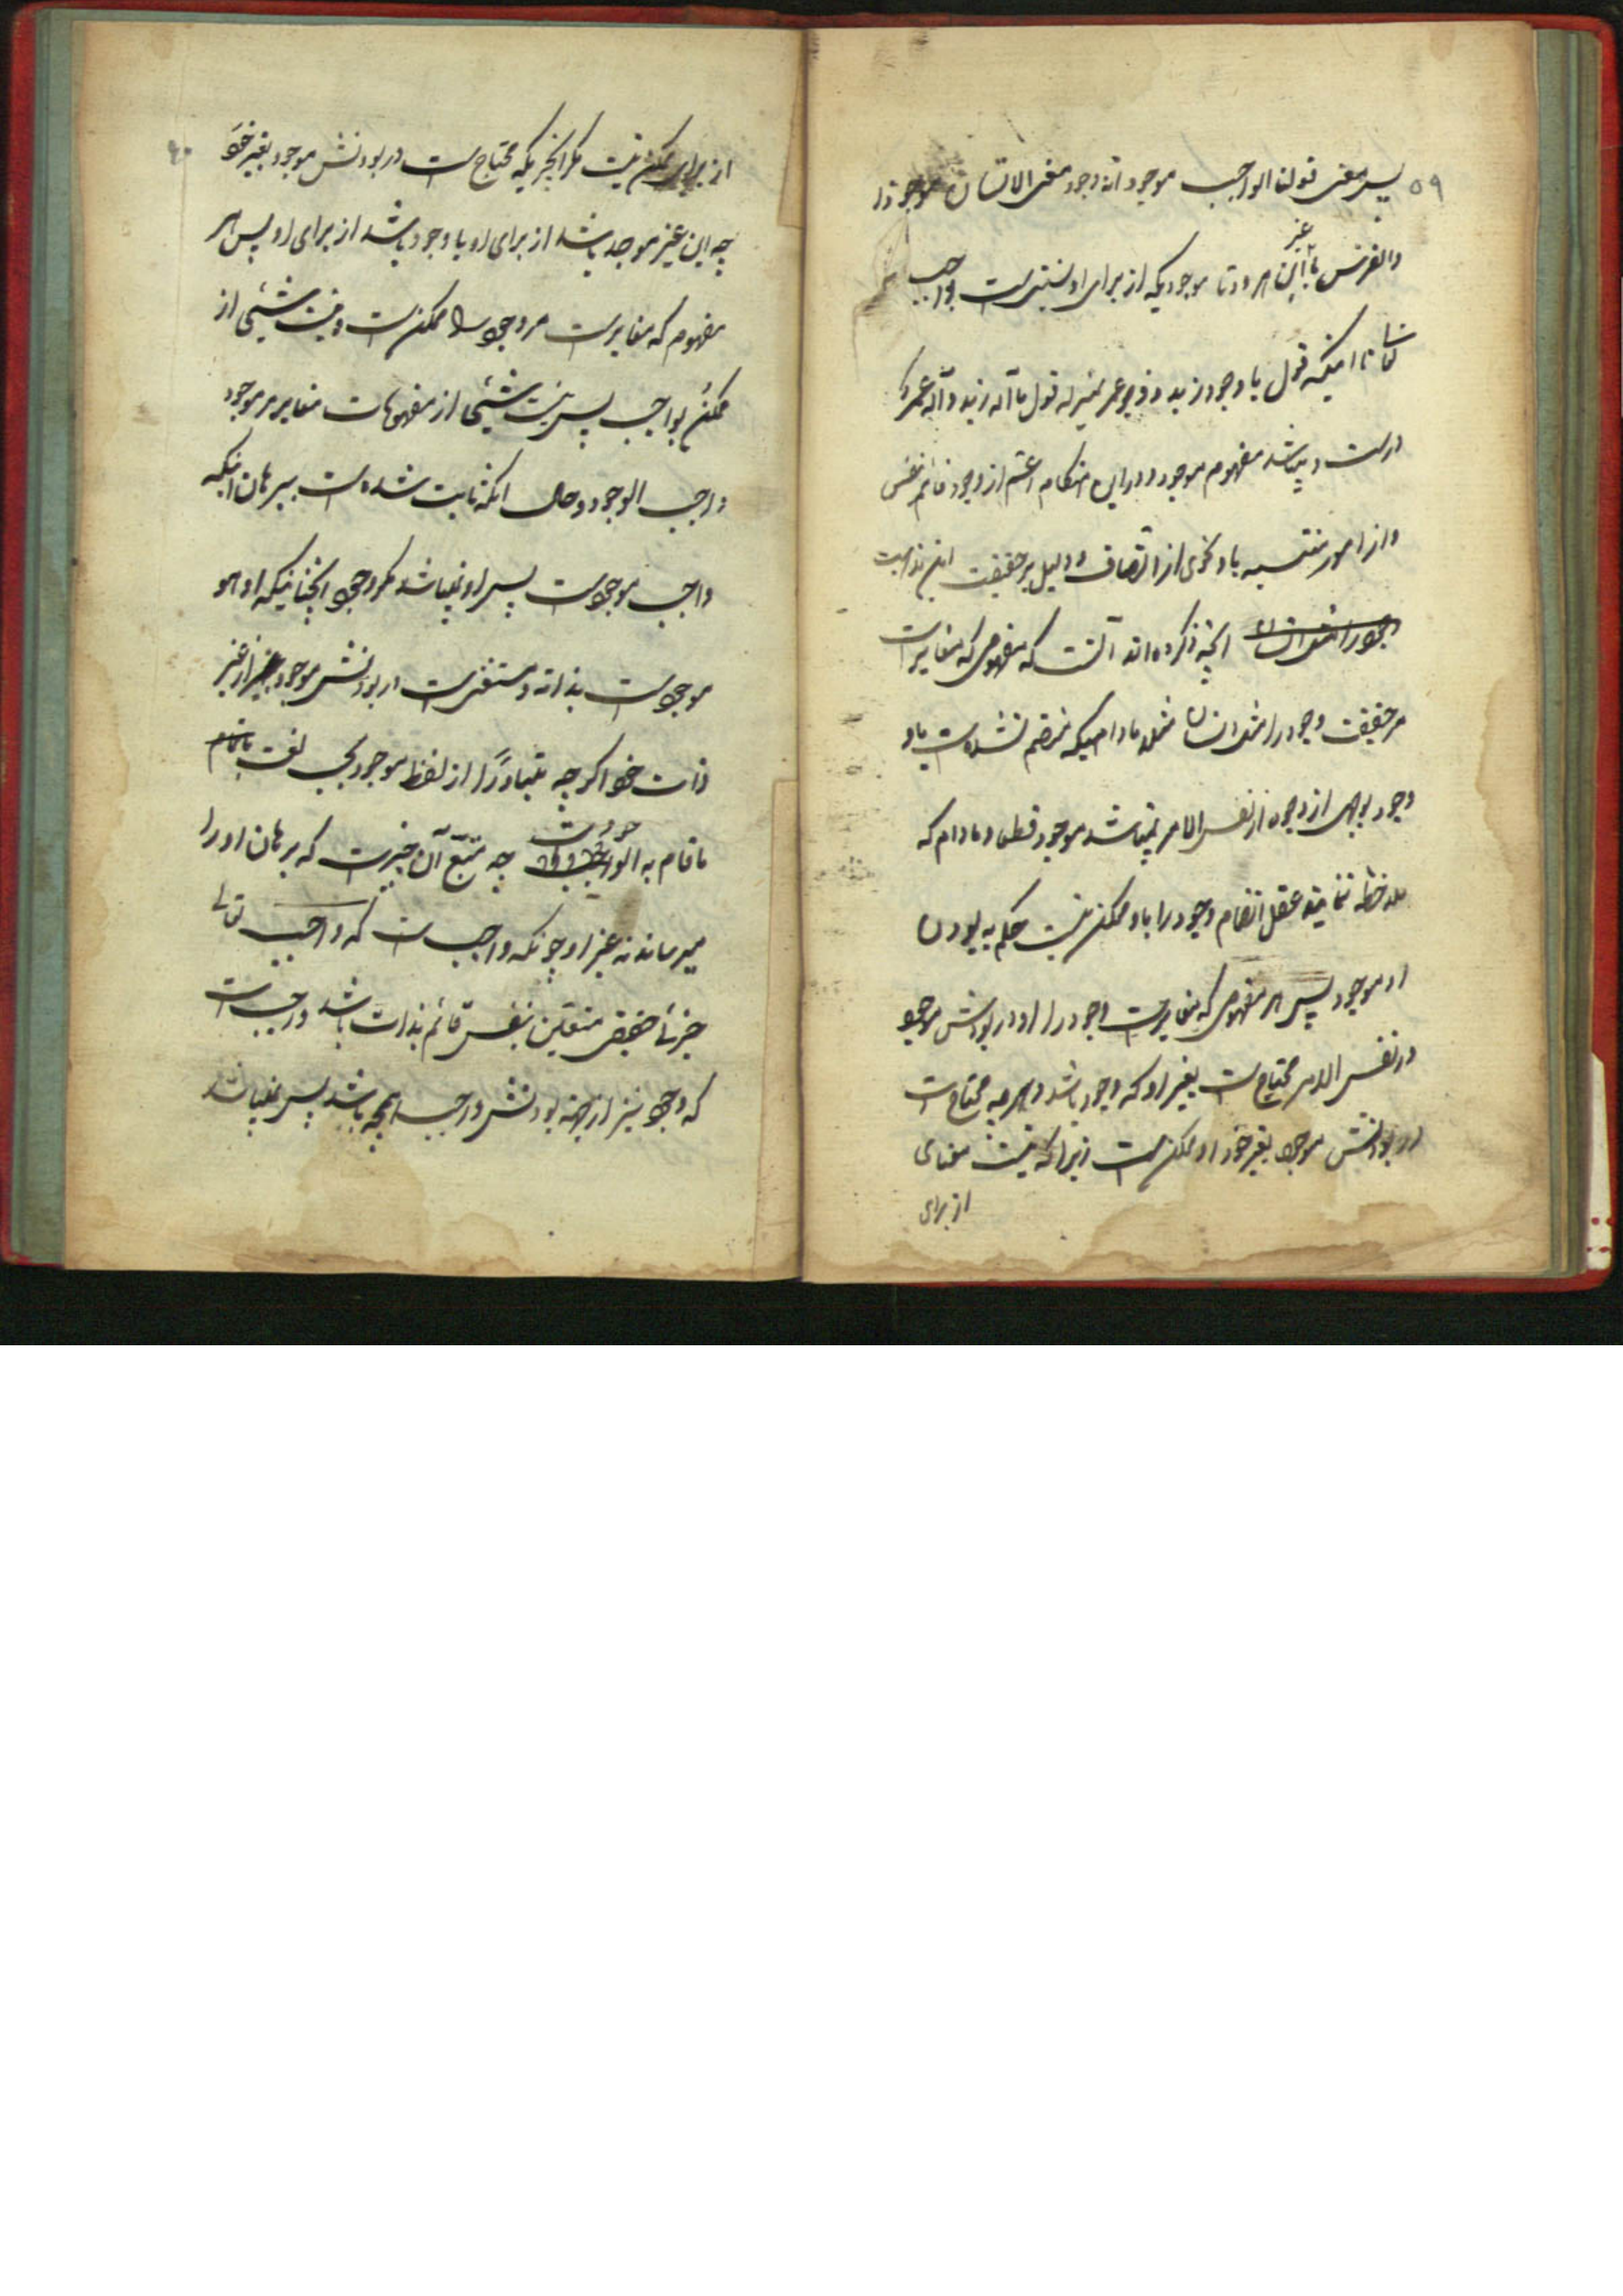 ۵۹
پس معنی قولنا الواجب موجود انه وجود معنی الانسان موجود
والفرس غیر این هر دو تا موجودیکه از برای او نسبتی است بواجب
تا اینکه قول با وجود زید و وجود عمر بمنزله قول ما اله زید و اله عمرو
درست و میباشد مفهوم موجود در این هنگام اعم از وجود قائم بنفس
و از امور منتسبه باو نحوی از اتصاف و دلیل بر حقیقت این مذهب
انچه ذکر کرده‌اند آنست که مفهومی که مغایرست
مر حقیقت وجود را مثل انسان مثلا مادامیکه منضم نشده است باو
وجود بوجهی از وجوه از نفس الامر نمیباشد موجود قطعا و مادام که
ملاحظه ننماید عقل انضمام وجود را باو ممکن نیست حکم به بودن
او موجود پس هر مفهومی که مغایرست وجود را او در بودنش موجود
در نفس الامر محتاج است بغیر او که وجود باشد و هر چه محتاج است
در بودنش موجود بغیر خود او ممکن است زیرا که نیست معنای
از برای
۶۰
از برای ممکن نیست مگر انچیزیکه محتاج است در بودنش موجود بغیر خود
چه این غیر موجد باشد از برای او یا وجود باشد از برای او پس هر
مفهوم که مغایرست مر وجود را ممکن است و نیست شیئی از
ممکن بواجب پس نیست شیئی از مفهومات مغایر مر موجود
واجب الوجود و حال انکه ثابت شده است ببرهان اینکه
واجب موجود است پس او نمیباشد مگر وجود انچنانیکه او هو
موجود است بذاته و مستغنی است در بودنش موجود از غیر
ذات خود اگر چه متبادرا از لفظ موجود بحسب لغت
ما قام به الوجود است چه متبع آن چیزست که برهان او را
میرساند نه غیر او چونکه واجب است که واجب تعالی
جزئی حقیقی متعین بنفس قائم بذات باشد واجب است
که وجود نیز از جهة بودنش واجب انچه باشد پس نمیباشد